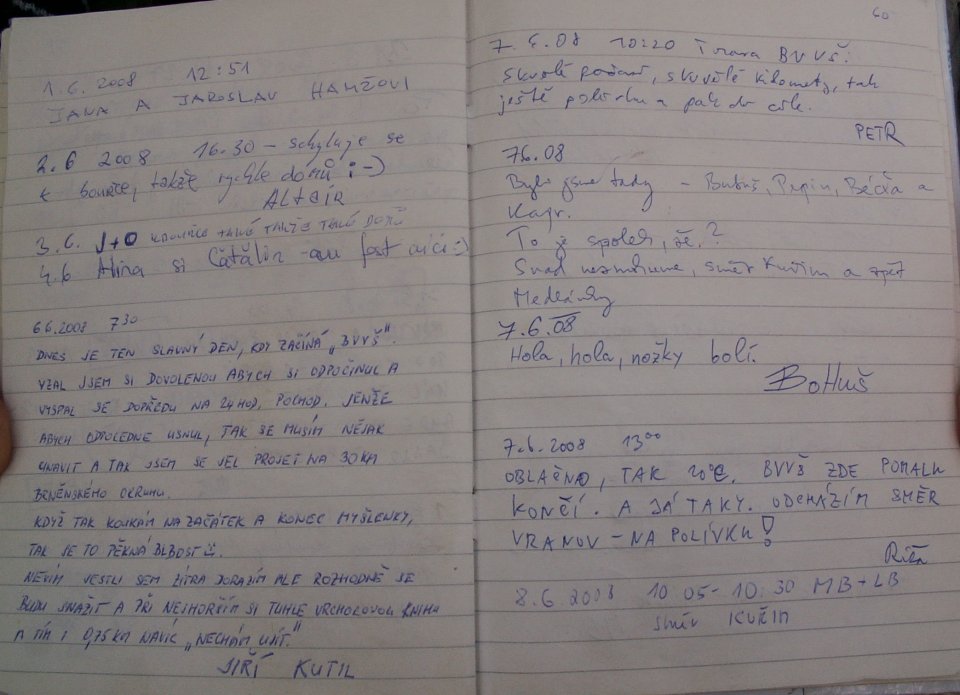 1.6.2008 12:51
JANA A JAROSLAV HAMŽOVI
2.6 2008 16.30 - schyluje se
k bouřce, takže rychle domů :-)
ALTAIR
3.6. J+O TAKÉ TAKŽE TAKÉ DOMŮ
4.6 Alina si Cătălin - au fost aici :)
6.6.2008 7 30
DNES JE TEN SLAVNÝ DEN, KDY ZAČÍNÁ "BVVŠ".
VZAL JSEM SI DOVOLENOU ABYCH SI ODPOČINUL A
VYSPAL SE DOPŘEDU NA 24 HOD. POCHOD. JENŽE
ABYCH ODPOLEDNE USNUL, TAK SE MUSÍM NĚJAK
UNAVIT A TAK JSEM SE JEL PROJET NA 30 KA
BRNĚNSKÉHO OKRUHU.
KDYŽ TAK KOUKÁM NA ZAČÁTEK A KONEC MYŠLENKY,
TAK JE TO PĚKNÁ BLBOST.
NEVÍM JESTLI SEM ZÍTRA DORAZÍM ALE ROZHODNĚ SE
BUDU SNAŽIT A PŘI NEJHORŠÍM SI TUHLE VRCHOLOVOU KNIHU
A TÍM I 0,75 KM NAVÍC "NECHÁM UJÍT."
JIŘÍ KUTIL
60
7.6.08 10:20 Trasa BVVŠ.
Skvělé počasí, skvělé kilometry, tak
ještě polívku a pak do cíle.
PETR
7.6.08
Byli jsme tady - Bubuš, Pepin, Béďa a
Kapr.
To je spolek, že?
Snad nezmokneme, směr Kuřim a zpět
Medlánky
7.6.08
Hola, hola, nožky bolí.
BOHUŠ
7.6.2008 13 00
OBLAČNO, TAK 20°C. BVVŠ ZDE POMALU
KONČÍ. A JÁ TAKY. ODCHÁZÍM SMĚR
VRANOV - NA POLÍVKU!
8.6.2008 10 05 - 10:30 MB + LB
směr KUŘIM